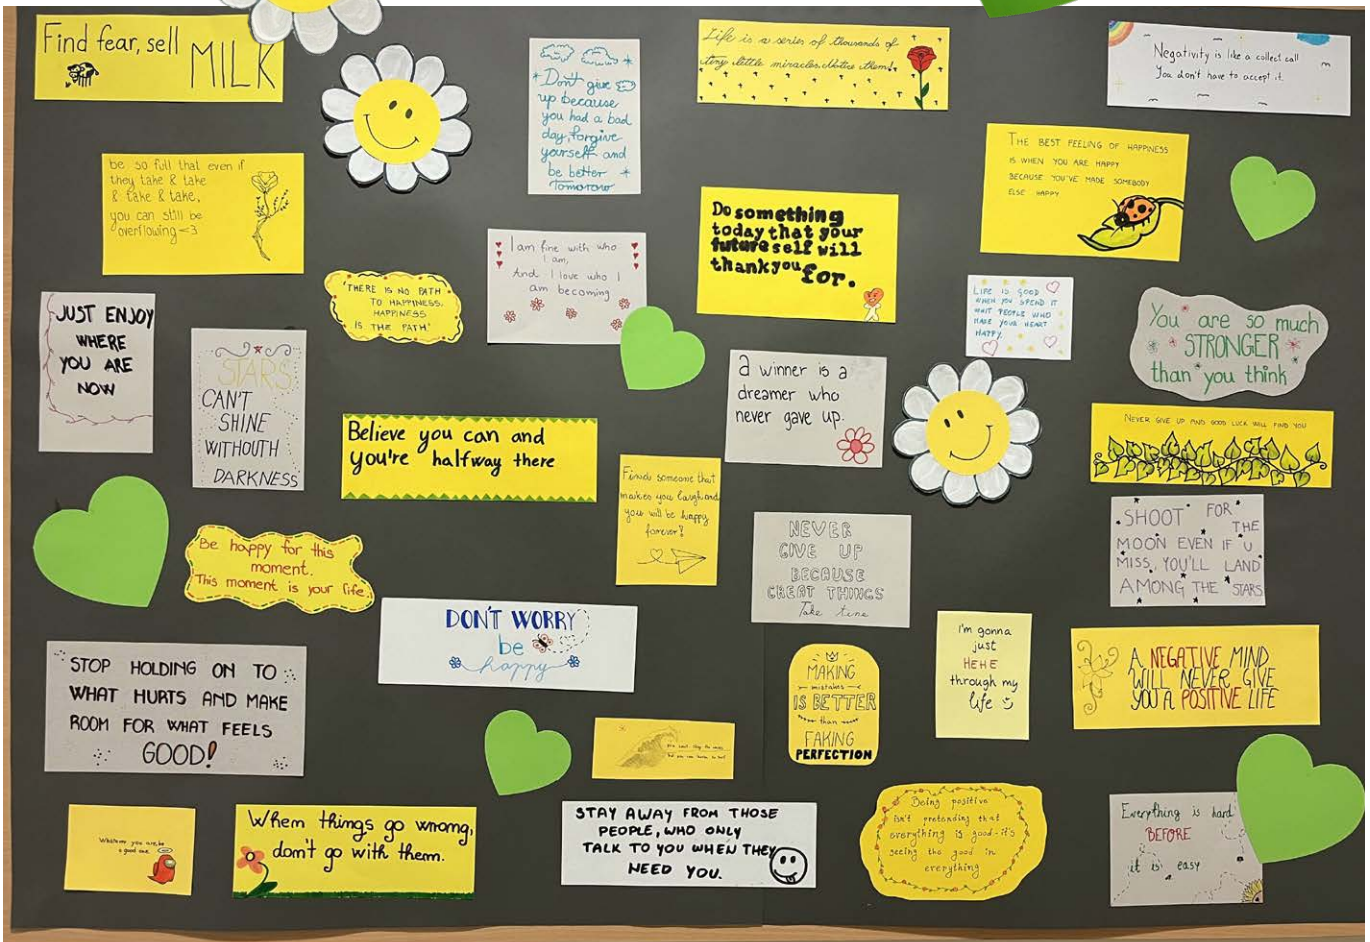 Find fear, sell
MILK
Don't give
up because
you had a bad
day, forgive
yourself and
be better
Tomorrow
Life is a series of thousands of
tiny little miracles. Notice them!
Negativity is like a collect call
You don't have to accept it.
be so full that even if
they take & take
& take & take,
you can still be
overflowing <3
THE BEST FEELING OF HAPPINESS
IS WHEN YOU ARE HAPPY
BECAUSE YOU'VE MADE SOMEBODY
ELSE HAPPY
Do something
today that your
future self will
thank you for.
I am fine with who
I am,
And I love who I
am becoming
'THERE IS NO PATH
TO HAPPINESS.
HAPPINESS
IS THE PATH'
LIFE IS GOOD
WHEN YOU SPEND IT
WHIT PEOPLE WHO
MADE YOUR HEART
HAPPY.
You are so much
STRONGER
than you think
JUST ENJOY
WHERE
YOU ARE
NOW
STARS
CAN'T
SHINE
WITHOUTH
DARKNESS
a winner is a
dreamer who
never gave up.
Believe you can and
you're halfway there
NEVER GIVE UP AND GOOD LUCK WILL FIND YOU
Find someone that
makes you laugh and
you will be happy
forever!
SHOOT FOR THE
MOON EVEN IF U
MISS, YOU'LL LAND
AMONG THE STARS
NEVER
GIVE UP
BECAUSE
GREAT THINGS
Take time
Be happy for this
moment.
This moment is your life.
DON'T WORRY
be
happy
I'm gonna
just
HEHE
through my
life
A NEGATIVE MIND
WILL NEVER GIVE
YOU A POSITIVE LIFE
STOP HOLDING ON TO
WHAT HURTS AND MAKE
ROOM FOR WHAT FEELS
GOOD!
MAKING
mistakes
IS BETTER
than
FAKING
PERFECTION
you can't stop the waves
but you can learn to surf
Whatever you are, be
a good one
When things go wrong,
don't go with them.
STAY AWAY FROM THOSE
PEOPLE, WHO ONLY
TALK TO YOU WHEN THEY
NEED YOU.
Being positive
isn't pretending that
everything is good - it's
seeing the good in
everything
Everything is hard
BEFORE
it is easy